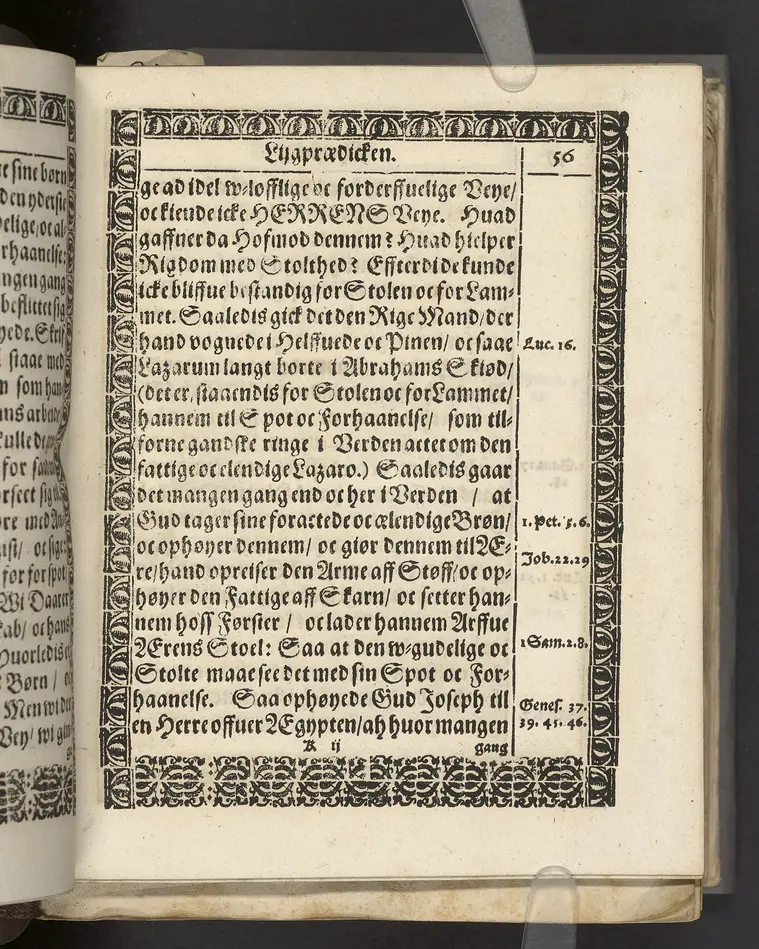 Lijgprædicken.
56
ge ad idel w-lofflige oc forderffuelige Veye/
oc kiende icke HERRENS Veye. Huad
gaffner da Hofmod dennem? Huad hielper
Rigdom med Stolthed? Effterdi de kunde
icke bliffue bestandig for Stolen oc for Lam-
met. Saaledis gick det den Rige Mand/ der
hand vognede i Helffuede oc Pinen/ oc saae
Luc. 16.
Lazarum langt borte i Abrahams Skiød/
(det er, staaendis for Stolen oc for Lammet/
hannem til Spot oc Forhaanelse/ som til-
forne gandske ringe i Verden actet om den
fattige oc elendige Lazaro.) Saaledis gaar
det mangen gang end oc her i Verden / at
Gud tager sine foractede oc ælendige Brøn/
1. Pet. 5. 6.
oc ophøyer dennem/ oc giør dennem til Æ-
Job. 22. 29
re/ hand opreiser den Arme aff Støff/ oc op-
høyer den Fattige aff Skarn/ oc setter han-
nem hoss Førster / oc lader hannem Arffue
Ærens Stoel: Saa at den w-gudelige oc
1 Sam. 2. 8.
Stolte maae see det med sin Spot oc For-
haanelse. Saa ophøyede Gud Joseph til
Genes. 37.
en Herre offuer Ægypten/ ah huor mangen
39. 41. 46.
K ij
gang